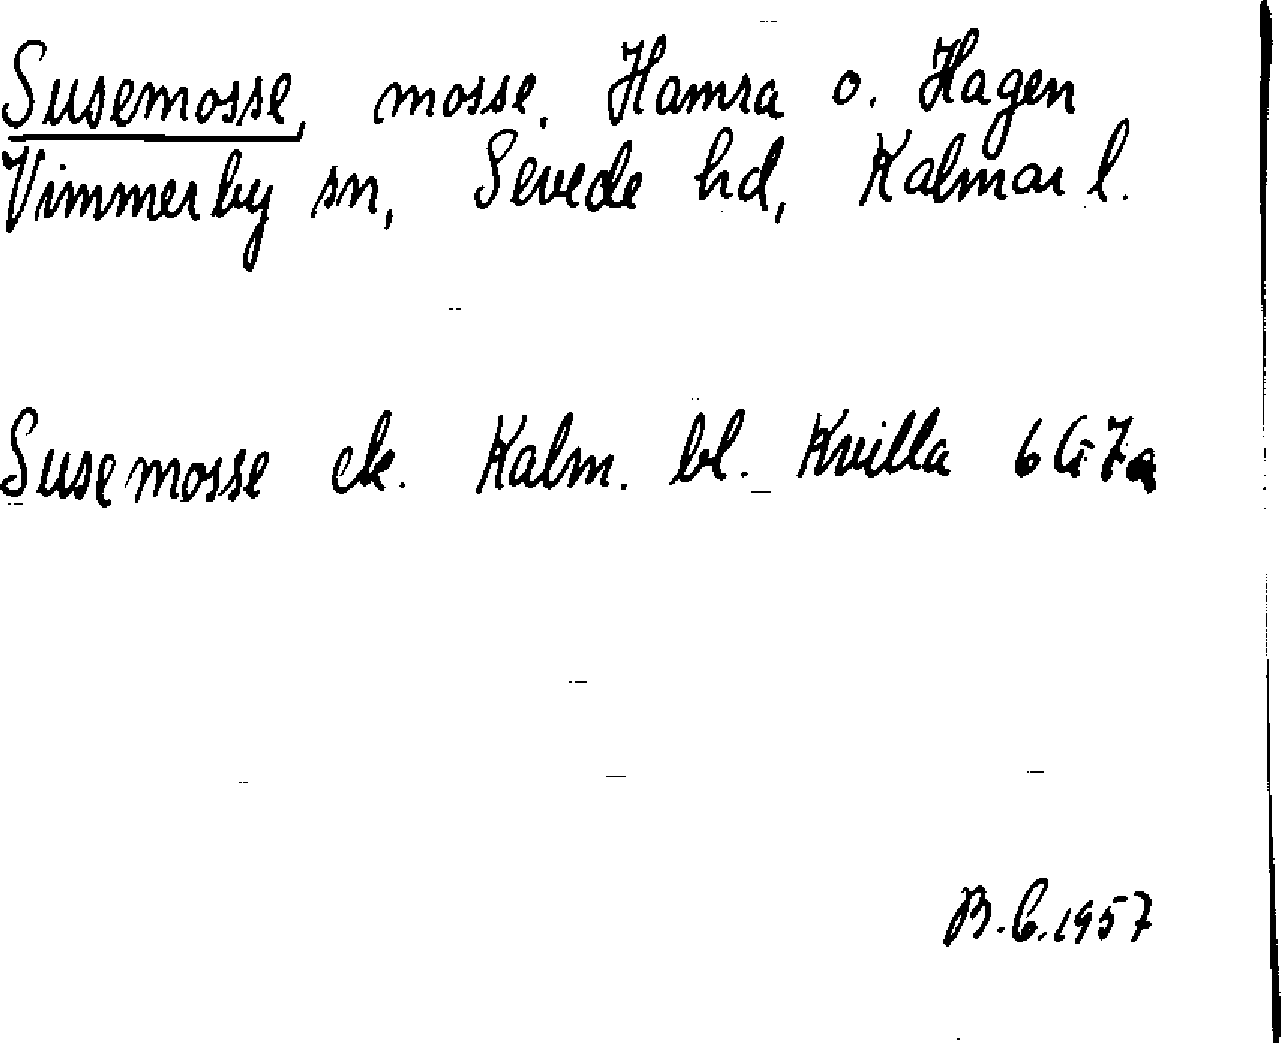 Susemosse, mosse, Hamra o. Hagen
Vimmerby sn, Sevede hd, Kalmar l.
Susemosse ek. Kalm. bl. Kvilla 6G7a
B.C. 1957